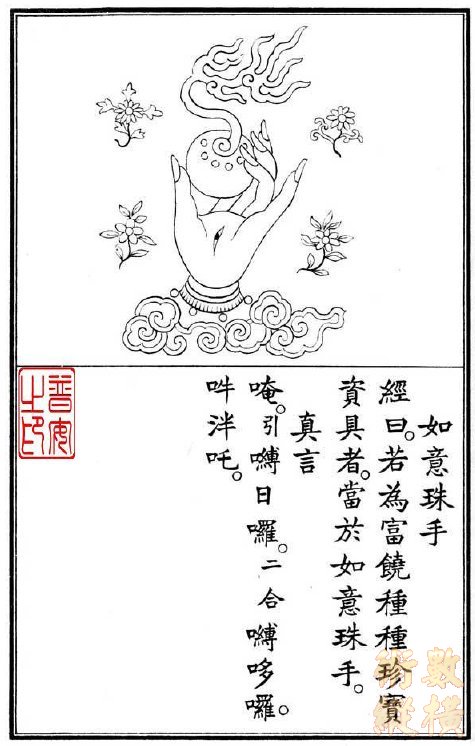 如意珠手
經曰。若為富饒種種珍寶
資具者。當於如意珠手。
真言
唵。引嚩日囉。二合嚩哆囉。
吽泮吒。
普安之印
數橫
術縱